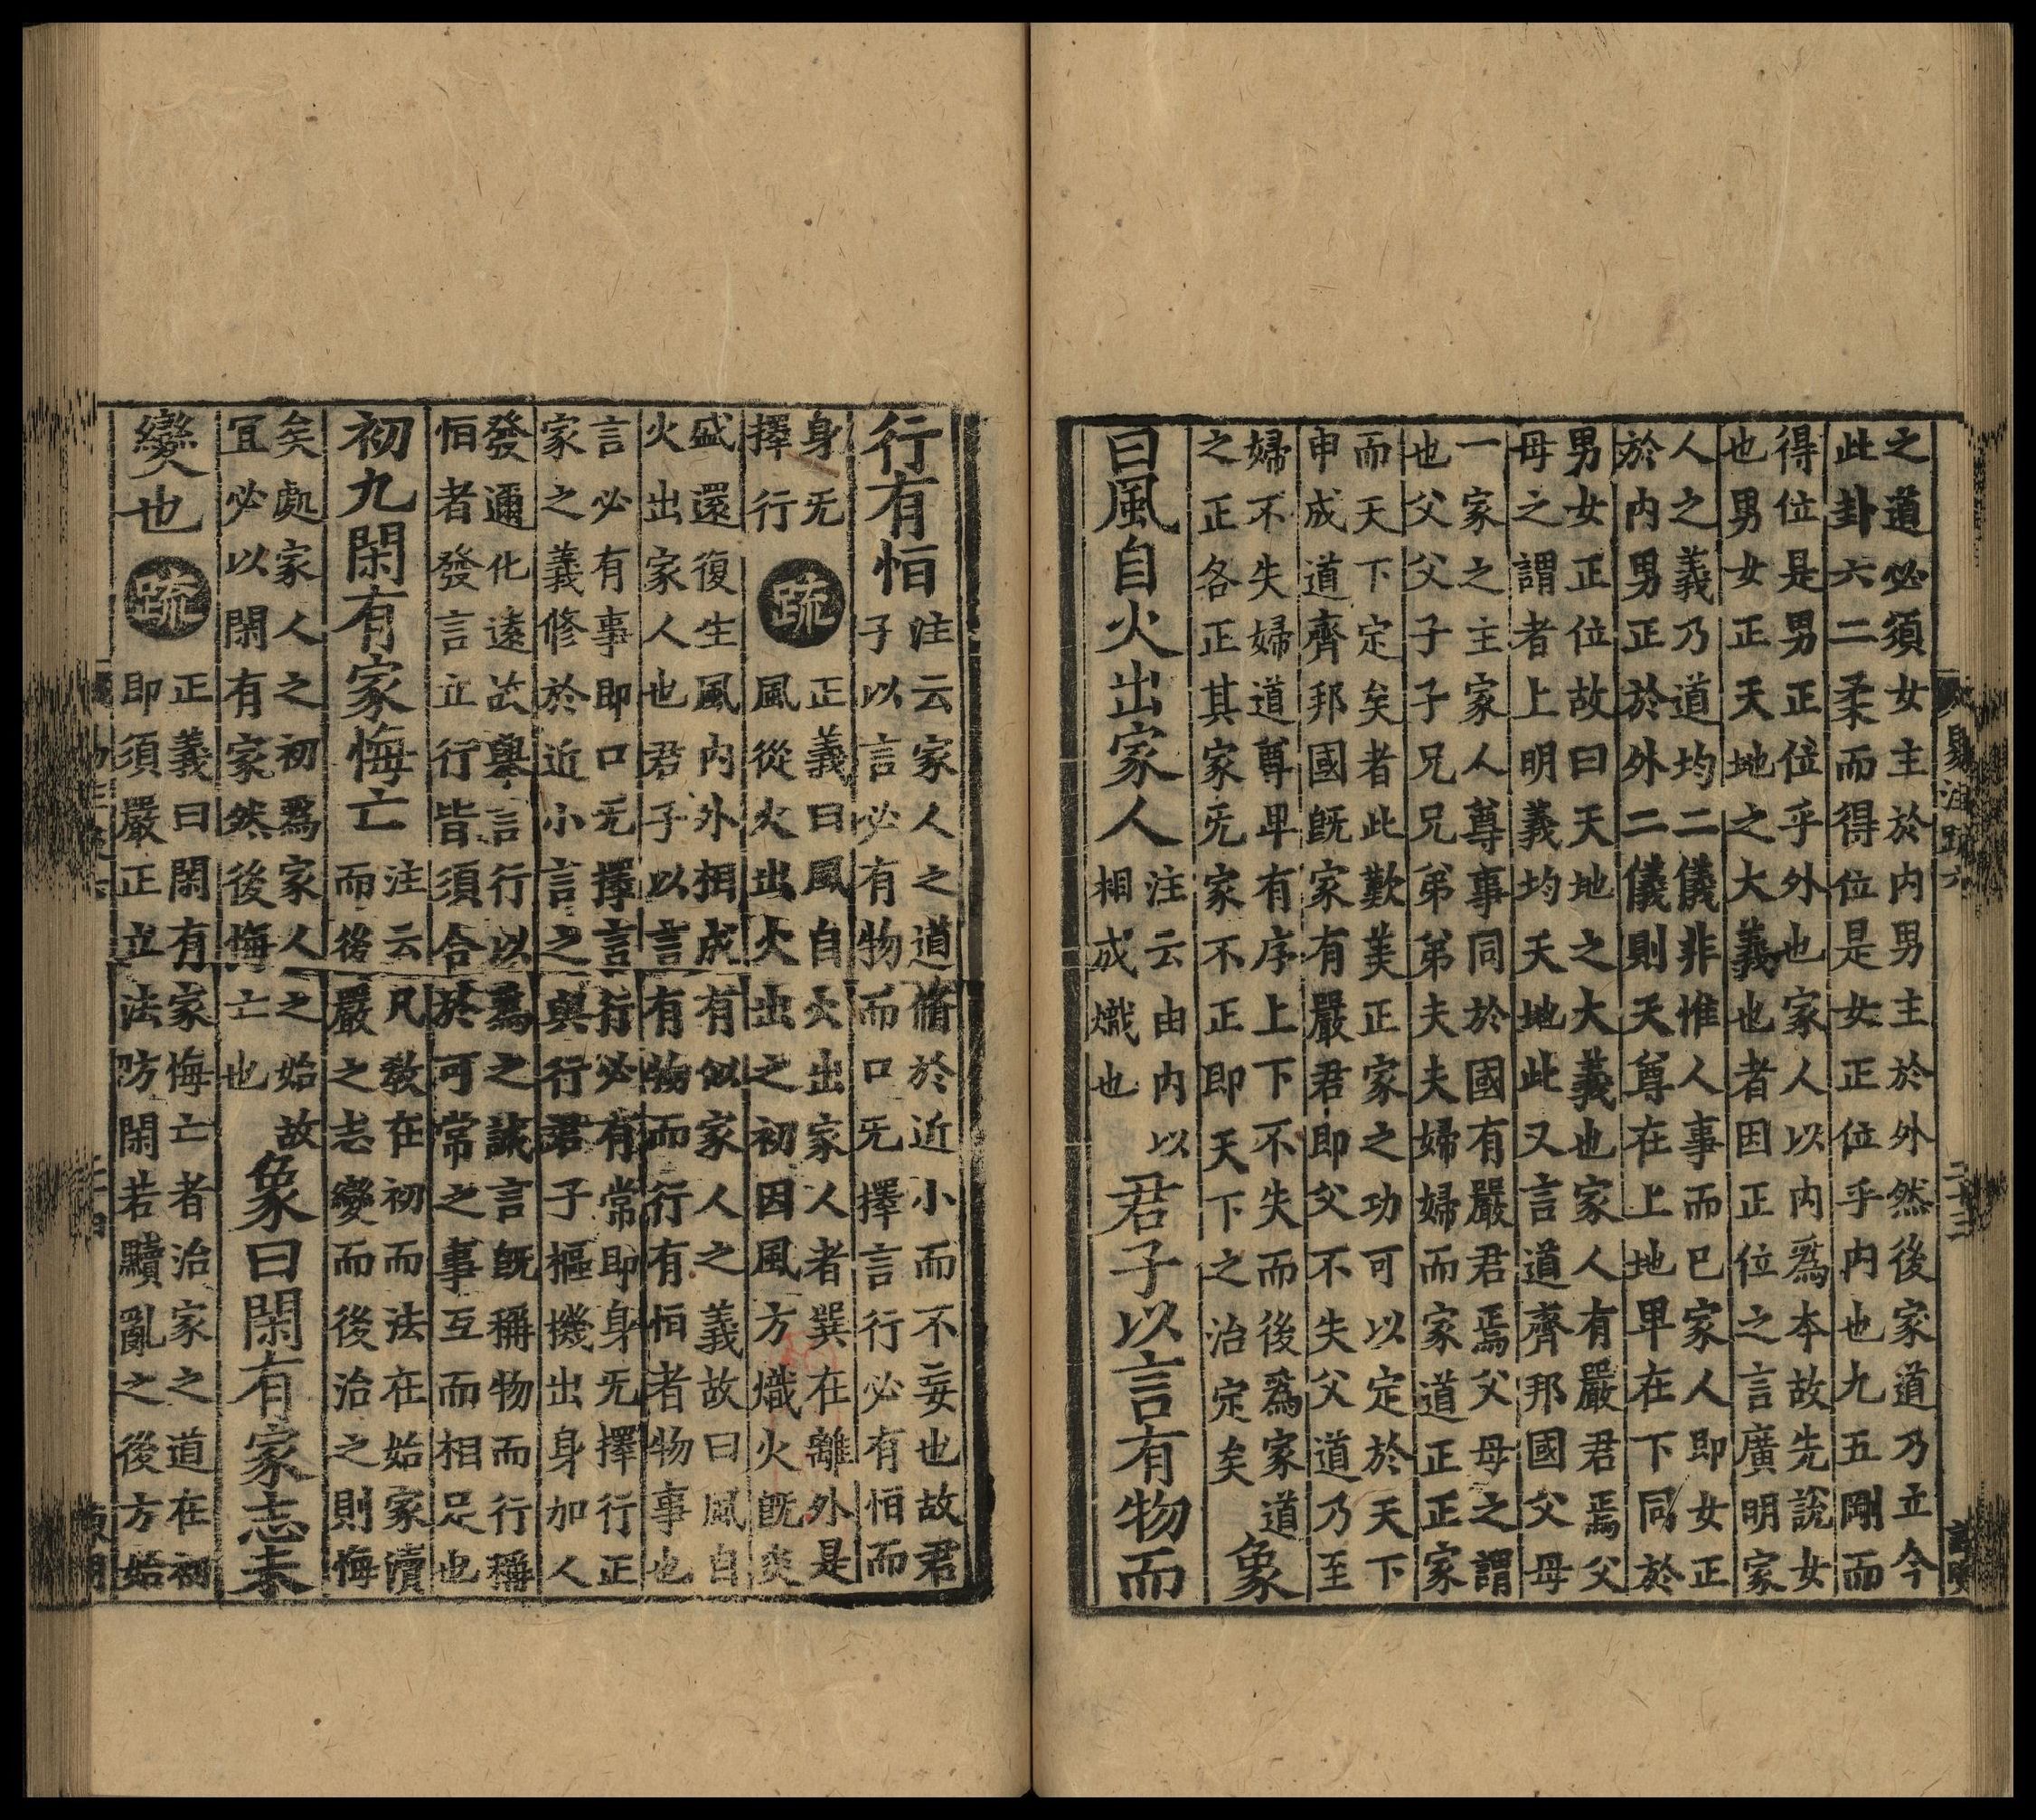 之道必須女主於内男主於外然後家道乃立今
此卦六二柔而得位是女正位乎内也九五剛而
得位是男正位乎外也家人以内爲本故先說女
也男女正天地之大義也者因正位之言廣明家
人之義乃道均二儀非惟人事而已家人即女正
於内男正於外二儀則天尊在上地卑在下同於
男女正位故曰天地之大義也家人有嚴君焉父
母之謂者上明義均天地此又言道齊邦國父母
一家之主家人尊事同於國有嚴君焉父母之謂
也父父子子兄兄弟弟夫夫婦婦而家道正正家
而天下定矣者此歎美正家之功可以定於天下
申成道齊邦國既家有嚴君即父不失父道乃至
婦不失婦道尊卑有序上下不失而後爲家道
之正各正其家无家不正即天下之治定矣
象
曰風自火出家人
注云由内以
相成熾也
君子以言有物而
易注疏六
二十三
行有恒
注云家人之道脩於近小而不妄也故君
子以言必有物而口无擇言行必有恒而
身无
擇行
疏
正義曰風自火出家人者巽在離外是
風從火出火出之初因風方熾火既炎
盛還復生風内外相成有似家人之義故曰風自
火出家人也君子以言有物而行有恒者物事也
言必有事即口无擇言行必有常即身无擇行正
家之義修於近小言之與行君子樞機出身加人
發邇化遠故舉言行以爲之誡言既稱物而行稱
恒者發言立行皆須合於可常之事互而相足也
初九閑有家悔亡
注云凡教在初而法在始家瀆
而後嚴之志變而後治之則悔
矣處家人之初爲家人之始故
宜必以閑有家然後悔亡也
象曰閑有家志未
變也
疏
正義曰閑有家悔亡者治家之道在初
即須嚴正立法防閑若黷亂之後方始